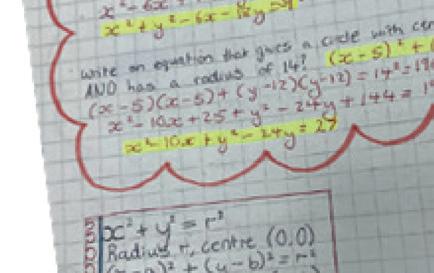 x² - 6x
x² + y² - 6x - 12y
write an equation that gives a circle with cen
AND has a radius of 14? (x-5)² + (
(x-5)(x-5) + (y-12)(y-12) = 14² = 19
x² - 10x + 25 + y² - 24y + 144 = 1
x² - 10x + y² - 24y = 27
x² + y² = r²
Radius r, centre (0,0)
)² + (y-b)² = r²